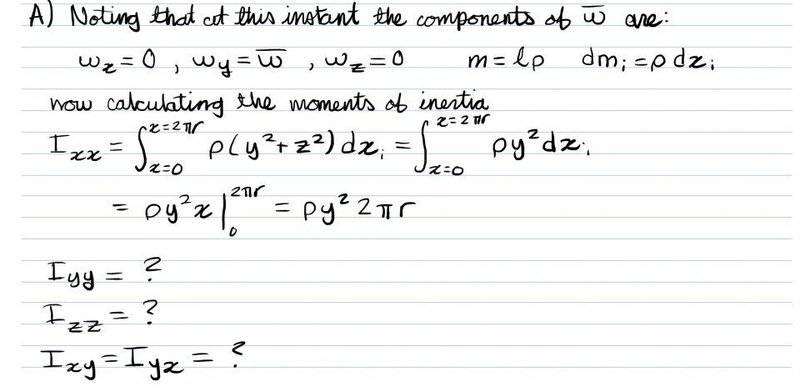 A) Noting that at this instant the components of ω̅ are:
ωx = 0 , ωy = ω̅ , ωz = 0 m = lρ dmᵢ = ρ dxᵢ
now calculating the moments of inertia
Ixx = ∫_{x=0}^{x=2πr} ρ(y² + z²) dxᵢ = ∫_{x=0}^{x=2πr} ρy² dxᵢ
= ρy²x |₀^{2πr} = ρy² 2πr
Iyy = ?
Izz = ?
Ixy = Iyx = ?